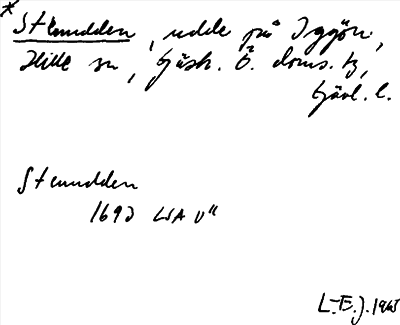 *
Stenudden, udde på Iggön,
Hille sn, Gäsh. Ö. doms. tg,
Gävl. l.
Stenudden
1693 LSA U"
L.E.J. 1965